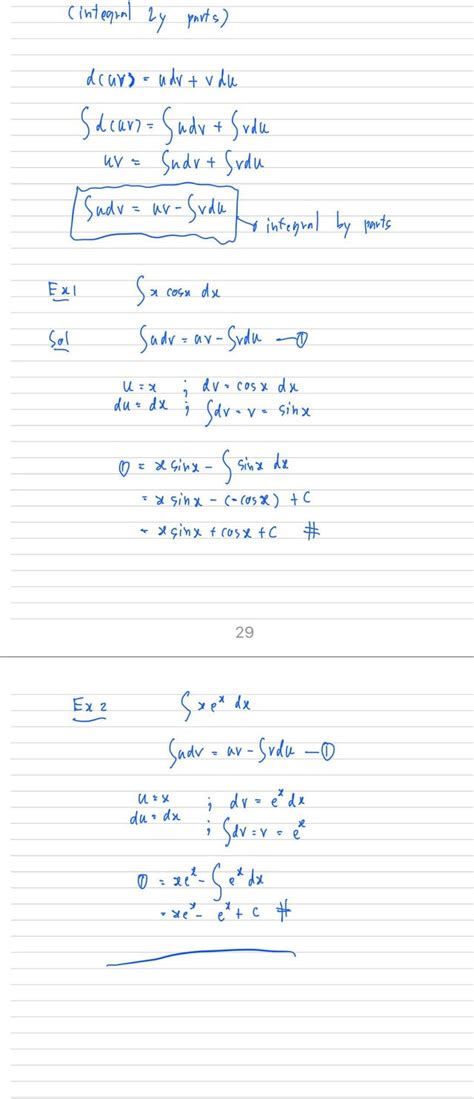 (integral by parts)
d(uv) = udv + vdu
∫d(uv) = ∫udv + ∫vdu
uv = ∫udv + ∫vdu
∫udv = uv - ∫vdu → integral by parts
Ex1 ∫x cosx dx
Sol ∫udv = uv - ∫vdu — ①
u = x ; dv = cosx dx
du = dx ; ∫dv = v = sinx
① = x sinx - ∫sinx dx
= x sinx - (-cosx) + C
= x sinx + cosx + C #
29
Ex 2 ∫xeˣ dx
∫udv = uv - ∫vdu — ①
u = x ; dv = eˣ dx
du = dx ; ∫dv = v = eˣ
① = xeˣ - ∫eˣ dx
= xeˣ - eˣ + C #